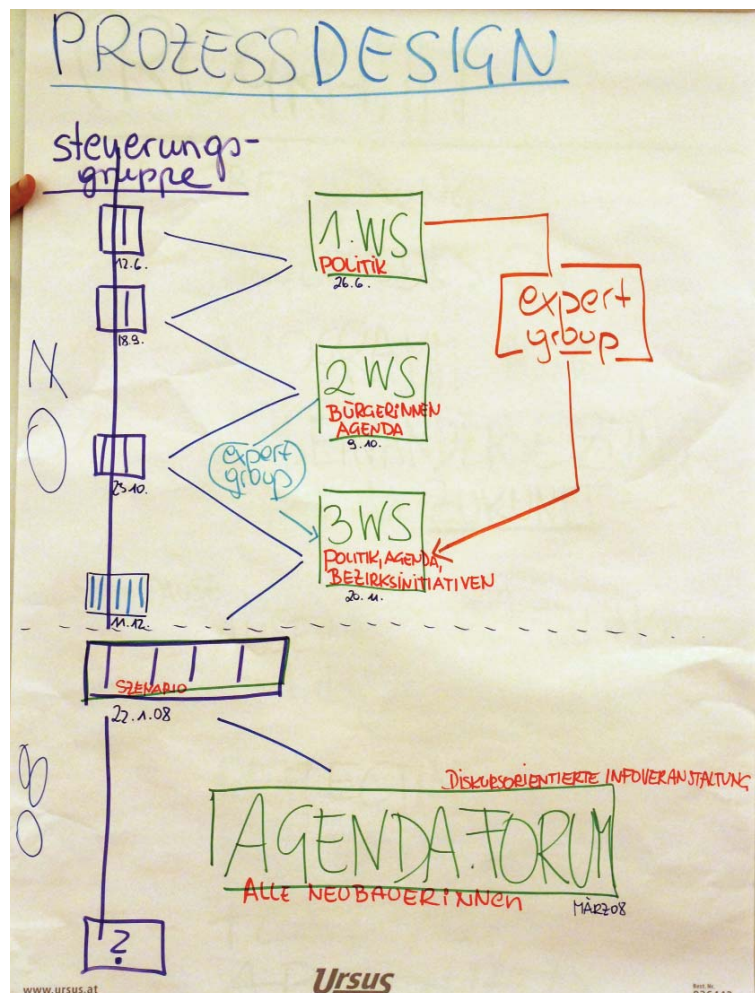 PROZESSDESIGN
steuerungs-
gruppe
12.6.
1.WS
POLITIK
26.6.
expert
group
18.9.
07
2 WS
BÜRGERINNEN
AGENDA
9.10.
expert
group
23.10.
3 WS
POLITIK, AGENDA,
BEZIRKSINITIATIVEN
20.11.
11.12.
SZENARIO
22.1.08
08
DISKURSORIENTIERTE INFOVERANSTALTUNG
AGENDA.FORUM
ALLE NEUBAUERINNEN
MÄRZ08
?
www.ursus.at
Ursus
Best. Nr.